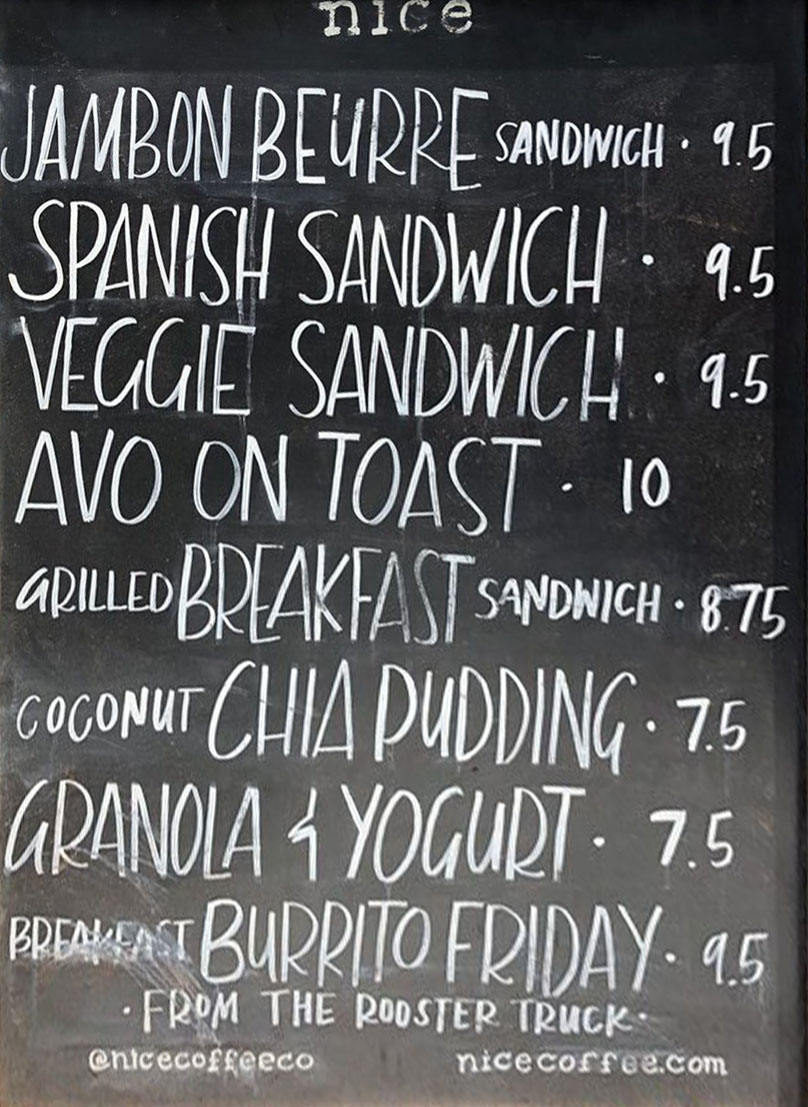 nice
JAMBON BEURRE SANDWICH · 9.5
SPANISH SANDWICH · 9.5
VEGGIE SANDWICH · 9.5
AVO ON TOAST · 10
GRILLED BREAKFAST SANDWICH · 8.75
COCONUT CHIA PUDDING · 7.5
GRANOLA & YOGURT · 7.5
BREAKFAST BURRITO FRIDAY · 9.5
· FROM THE ROOSTER TRUCK ·
@nicecoffeeco nicecoffee.com